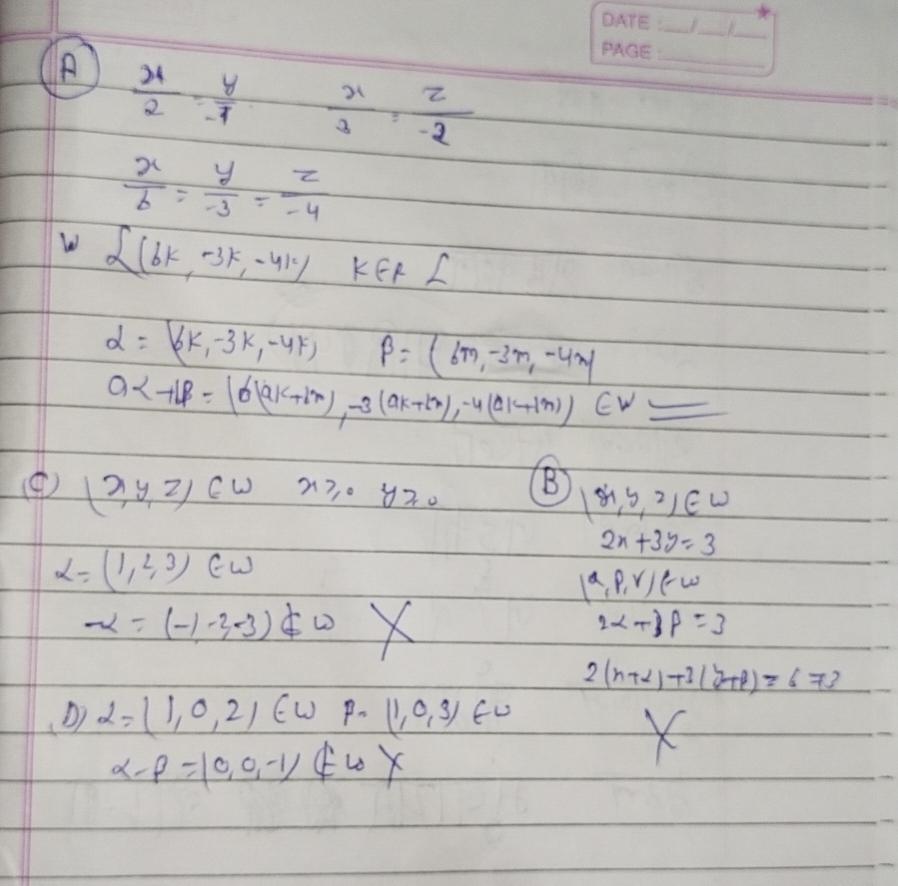 DATE: __/__/__
PAGE:
(A) x/2 = y/-1   x/3 = z/-2
x/6 = y/-3 = z/-4
W {(6k, -3k, -4k) k∈R {
α = (6k, -3k, -4k)   β = (6m, -3m, -4m)
aα+bβ = (6(ak+bm), -3(ak+bm), -4(ak+bm)) ∈W
(C) (x, y, z) ∈ W   x≥0   y≥0
α = (1, 2, 3) ∈W
-α = (-1, -2, -3) ∉ W ✗
(B) (x, y, z) ∈ W
2x + 3y = 3
(α, β, γ) ∈ W
2α + 3β = 3
2(x+α) + 3(y+β) = 6 ≠ 3
✗
(D) α = (1, 0, 2) ∈W   β = (1, 0, 3) ∈W
α-β = (0, 0, -1) ∉ W ✗